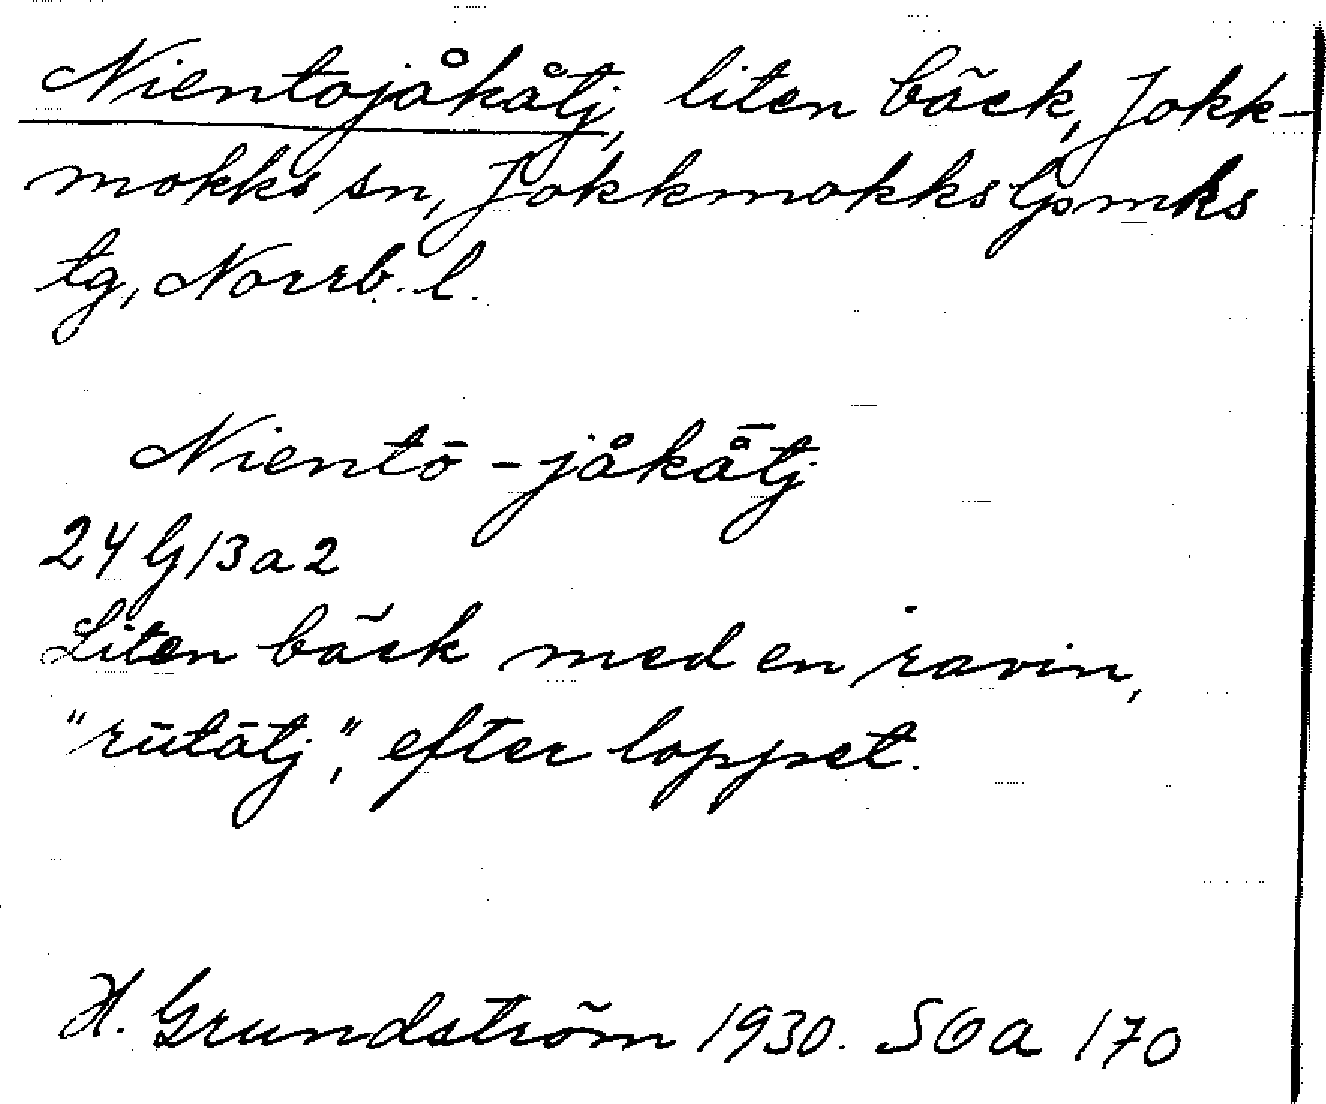 Nientojåkåtj, liten bäck, Jokk-
mokks sn, Jokkmokks lpmks
tg, Norrb. l.
Nientō-jåkå̄tj
24 G/3a2
Liten bäck med en ravin,
"rūtātj", efter loppet.
H. Grundström 1930. SOa 170